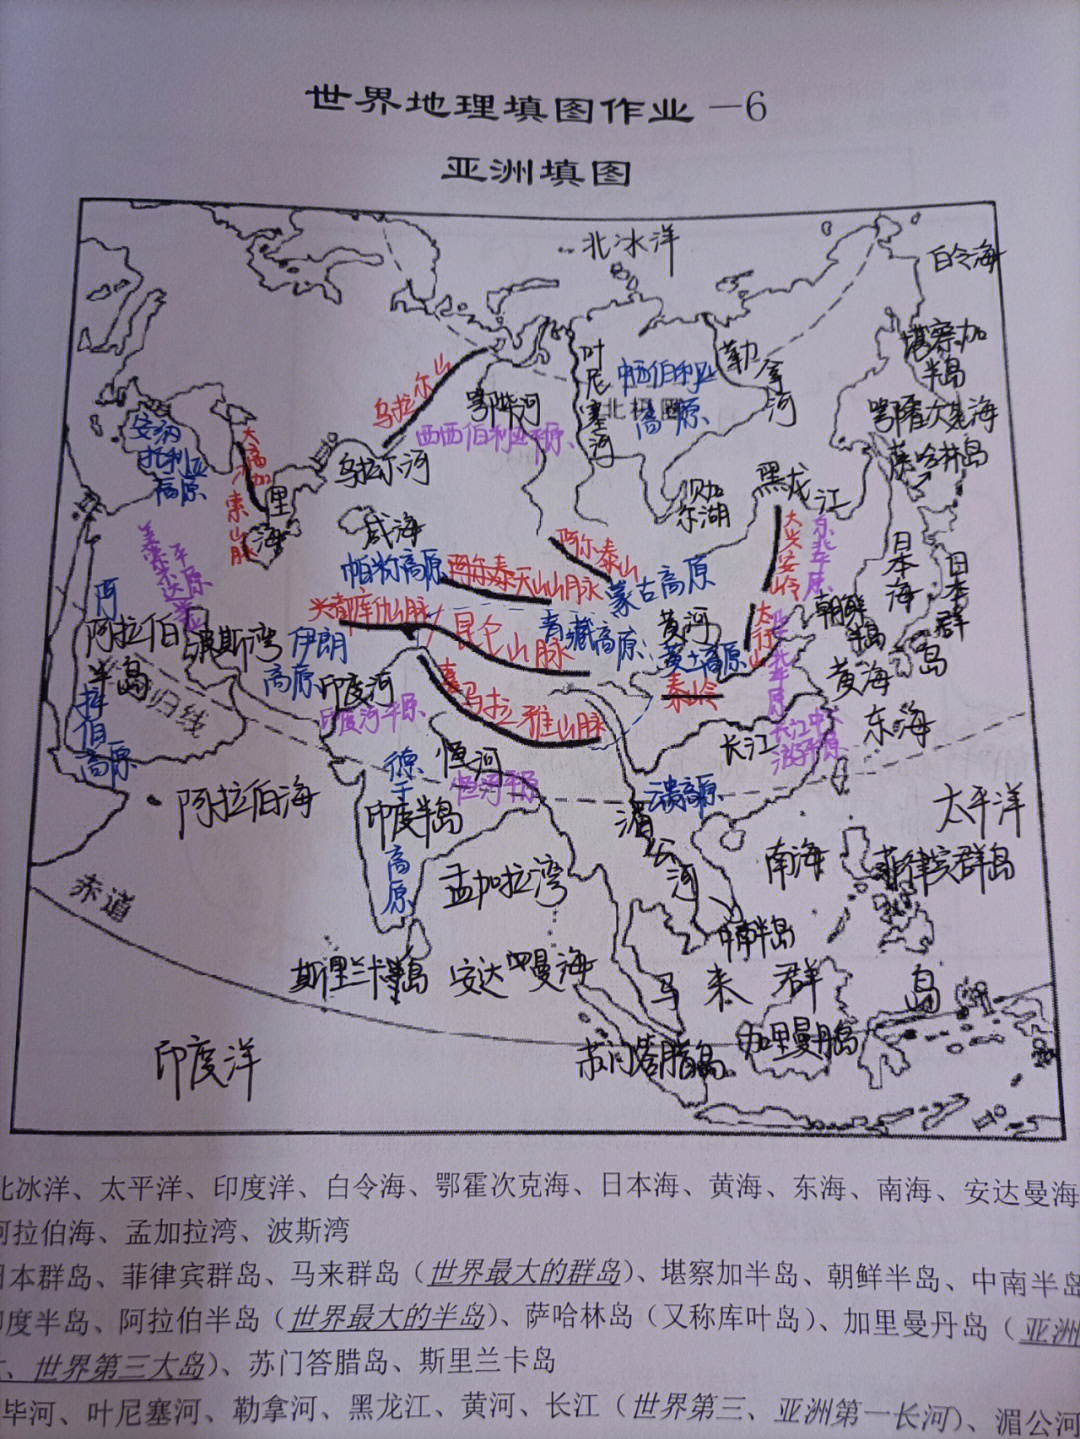 世界地理填图作业 —6
亚洲填图
北冰洋
白令海
堪察加
半岛
鄂霍次克海
萨哈林岛
乌拉尔山
鄂毕河
西西伯利亚平原
叶尼塞河
中西伯利亚
高原
北极圈
勒拿河
安纳
托利亚
高原
大高加索山脉
里海
乌拉尔河
咸海
贝加
尔湖
黑龙江
大兴安岭
东北平原
日本海
日本群岛
帕米尔高原
阿尔泰天山山脉
阿尔泰山
蒙古高原
美索不达米亚平原
兴都库什山脉
昆仑山脉
青藏高原
黄河
黄土高原
太行山
华北平原
朝鲜
半岛
黄海
阿拉伯
半岛
阿拉伯
高原
波斯湾
伊朗
高原
印度河
印度河平原
喜马拉雅山脉
秦岭
长江
长江中下游平原
东海
归线
阿拉伯海
德干
高原
恒河
恒河平原
印度半岛
云贵高原
湄公河
太平洋
南海
菲律宾群岛
赤道
孟加拉湾
中南半岛
斯里兰卡岛
安达曼海
马来群岛
印度洋
苏门答腊岛
加里曼丹岛
北冰洋、太平洋、印度洋、白令海、鄂霍次克海、日本海、黄海、东海、南海、安达曼海
阿拉伯海、孟加拉湾、波斯湾
日本群岛、菲律宾群岛、马来群岛（世界最大的群岛）、堪察加半岛、朝鲜半岛、中南半岛
印度半岛、阿拉伯半岛（世界最大的半岛）、萨哈林岛（又称库叶岛）、加里曼丹岛（亚洲
、世界第三大岛）、苏门答腊岛、斯里兰卡岛
毕河、叶尼塞河、勒拿河、黑龙江、黄河、长江（世界第三、亚洲第一长河）、湄公河